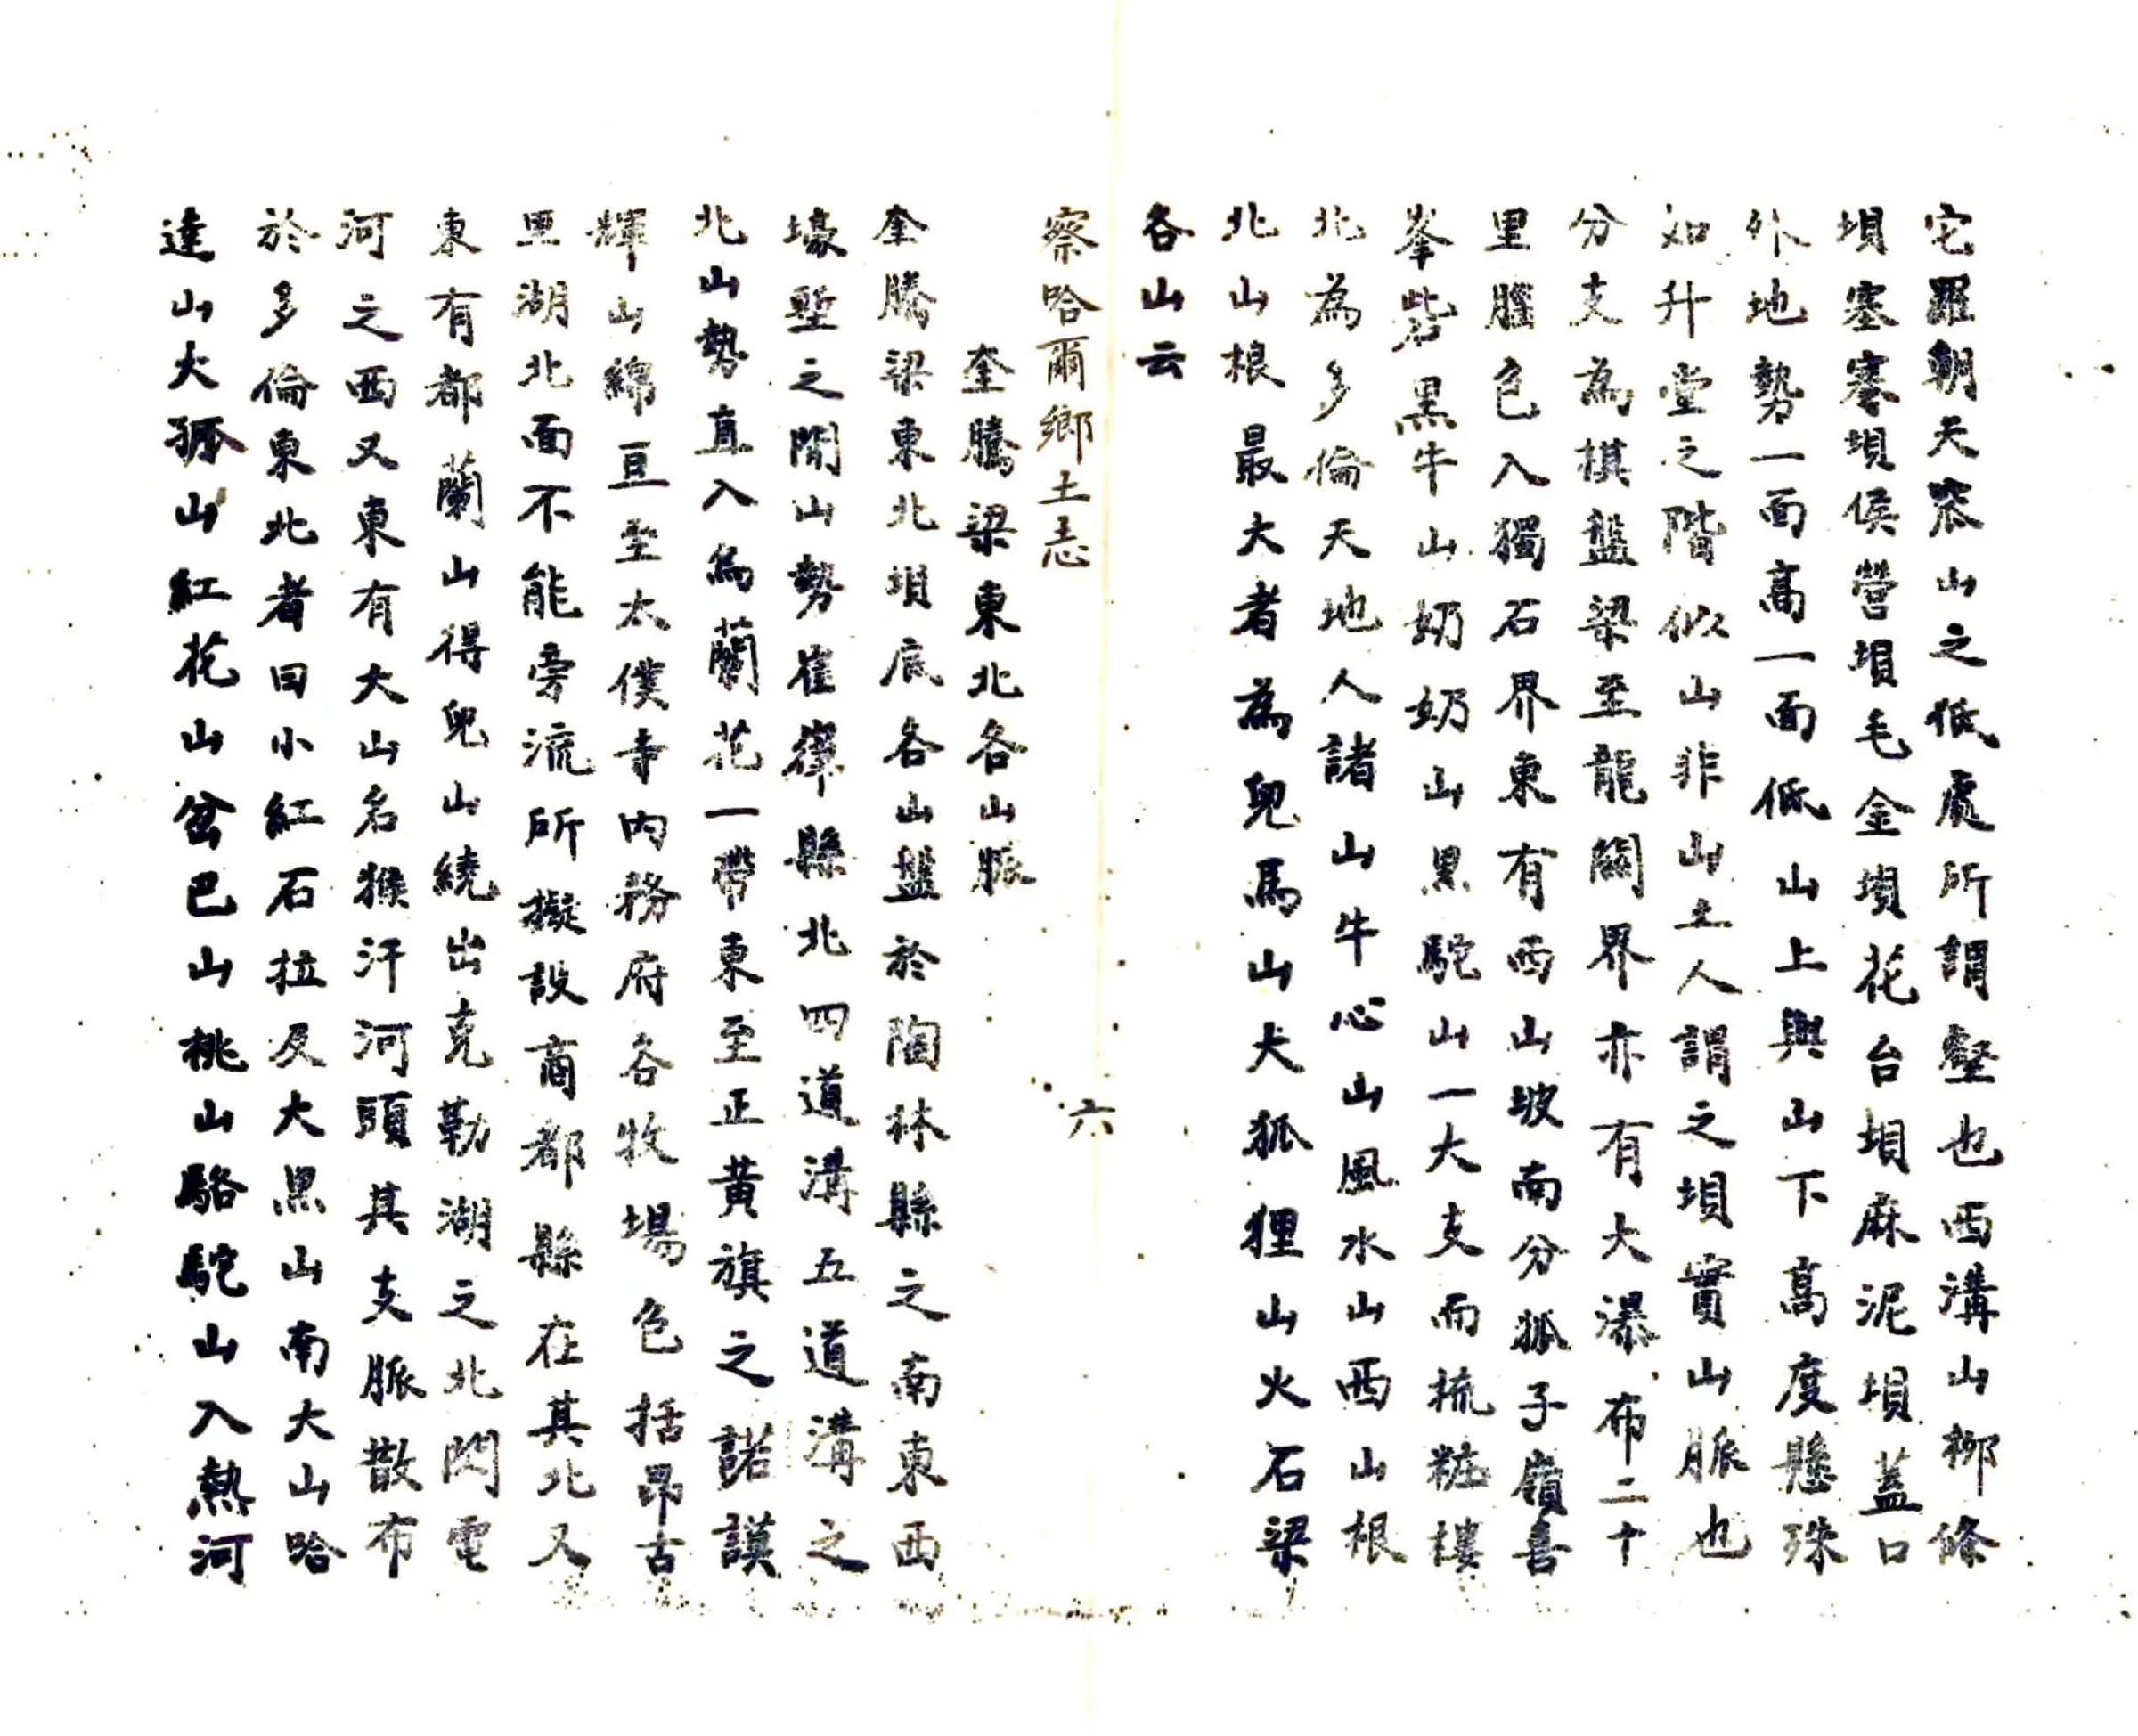 它羅朝天窓山之低處所謂壑也西溝山柳條
垻塞塞垻侯營垻毛金垻花台垻麻泥垻蓋口
外地勢一面高一面低山上與山下高度懸殊
如升堂之階似山非山土人謂之垻實山脈也
分支為棋盤梁至龍關界亦有大瀑布二十
里腦包入獨石界東有西山坡南分狐子嶺喜
峯砦黑牛山奶奶山黑駝山一大支而梳粧樓
北為多倫天地人諸山牛心山風水山西山根
北山根最大者為兒馬山犬狐狸山火石梁
各山云
察哈爾鄉土志
六
奎騰梁東北各山脈
奎騰梁東北垻底各山盤於陶林縣之南東西
壕塹之間山勢崔巍縣北四道溝五道溝之
北山勢直入烏蘭花一帶東至正黃旗之諾謨
輝山綿亘至太僕寺內務府各牧場包括昂古
里湖北面不能旁流所擬設商都縣在其北又
東有都蘭山得兒山繞出克勒湖之北閃電
河之西又東有大山名猴汗河頭其支脈散布
於多倫東北者曰小紅石拉及大黑山南大山哈
達山大孤山紅花山岔巴山桃山駱駝山入熱河